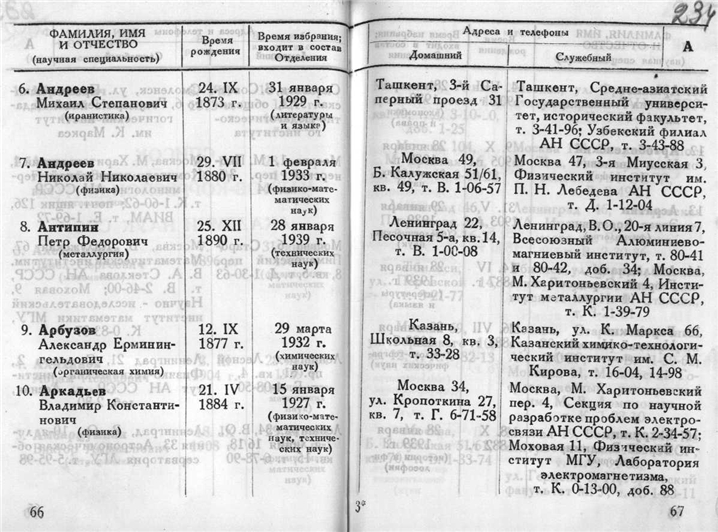 ФАМИЛИЯ, ИМЯ
И ОТЧЕСТВО
(научная специальность)
Время
рождения
Время избрания;
входит в состав
Отделения
6. Андреев
Михаил Степанович
(иранистика)
24. IX
1873 г.
31 января
1929 г.
(литературы
и языка)
7. Андреев
Николай Николаевич
(физика)
29. VII
1880 г.
1 февраля
1933 г.
(физико-мате-
матических
наук)
8. Антипин
Петр Федорович
(металлургия)
25. XII
1890 г.
28 января
1939 г.
(технических
наук)
9. Арбузов
Александр Ерминин-
гельдович
(органическая химия)
12. IX
1877 г.
29 марта
1932 г.
(химических
наук)
10. Аркадьев
Владимир Константи-
нович
(физика)
21. IV
1884 г.
15 января
1927 г.
(физико-мате-
матических
наук, техниче-
ских наук)
66
234
Адреса и телефоны
А
Домашний
Служебный
Ташкент, 3-й Са-
перный проезд 31
Ташкент, Средне-азиатский
Государственный универси-
тет, исторический факультет,
т. 3-41-96; Узбекский филиал
АН СССР, т. 3-43-88
Москва 49,
Б. Калужская 51/61,
кв. 49, т. В. 1-06-57
Москва 47, 3-я Миусская 3,
Физический институт им.
П. Н. Лебедева АН СССР,
т. Д. 1-12-04
Ленинград 22,
Песочная 5-а, кв. 14,
т. В. 1-00-08
Ленинград, В.О., 20-я линия 7,
Всесоюзный Алюминиево-
магниевый институт, т. 80-41
и 80-42, доб. 34; Москва,
М. Харитоньевский 4, Инсти-
тут металлургии АН СССР,
т. К. 1-39-79
Казань,
Школьная 8, кв. 3,
т. 33-28
Казань, ул. К. Маркса 66,
Казанский химико-технологи-
ческий институт им. С. М.
Кирова, т. 16-04, 14-98
Москва 34,
ул. Кропоткина 27,
кв. 7, т. Г. 6-71-58
Москва, М. Харитоньевский
пер. 4, Секция по научной
разработке проблем электро-
связи АН СССР, т. К. 2-34-57;
Моховая 11, Физический ин-
ститут МГУ, Лаборатория
электромагнетизма,
т. К. 0-13-00, доб. 88
3*
67